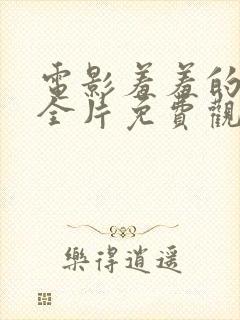 電影羞羞的
全片免費觀
樂得逍遥